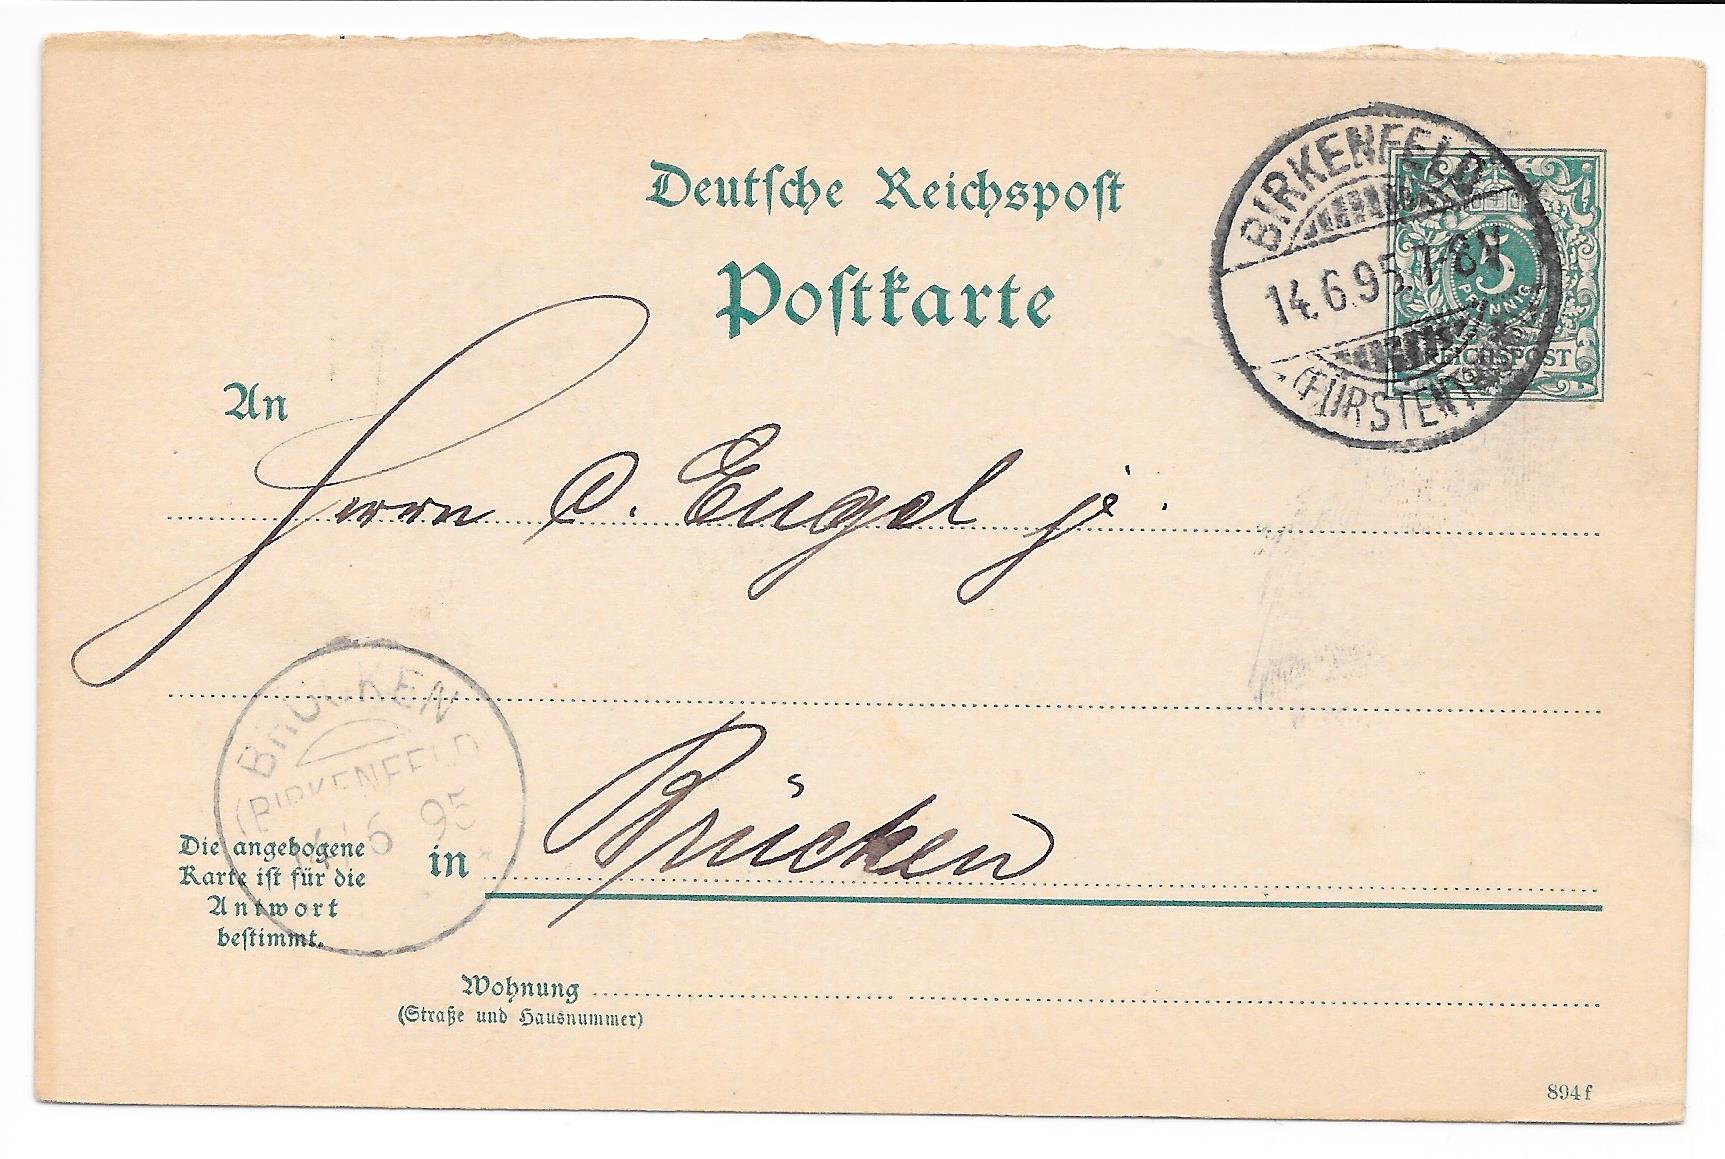 Deutsche Reichspost
Postkarte
BIRKENFELD
14.6.95.7-8N
(FÜRSTENT
5
PFENNIG
REICHSPOST
An
Herrn C. Engel jr.
BRÜCKEN
(BIRKENFELD
14 6 95
Die angebogene
Karte ist für die
Antwort
bestimmt.
in Brücken
Wohnung
(Straße und Hausnummer)
894 f